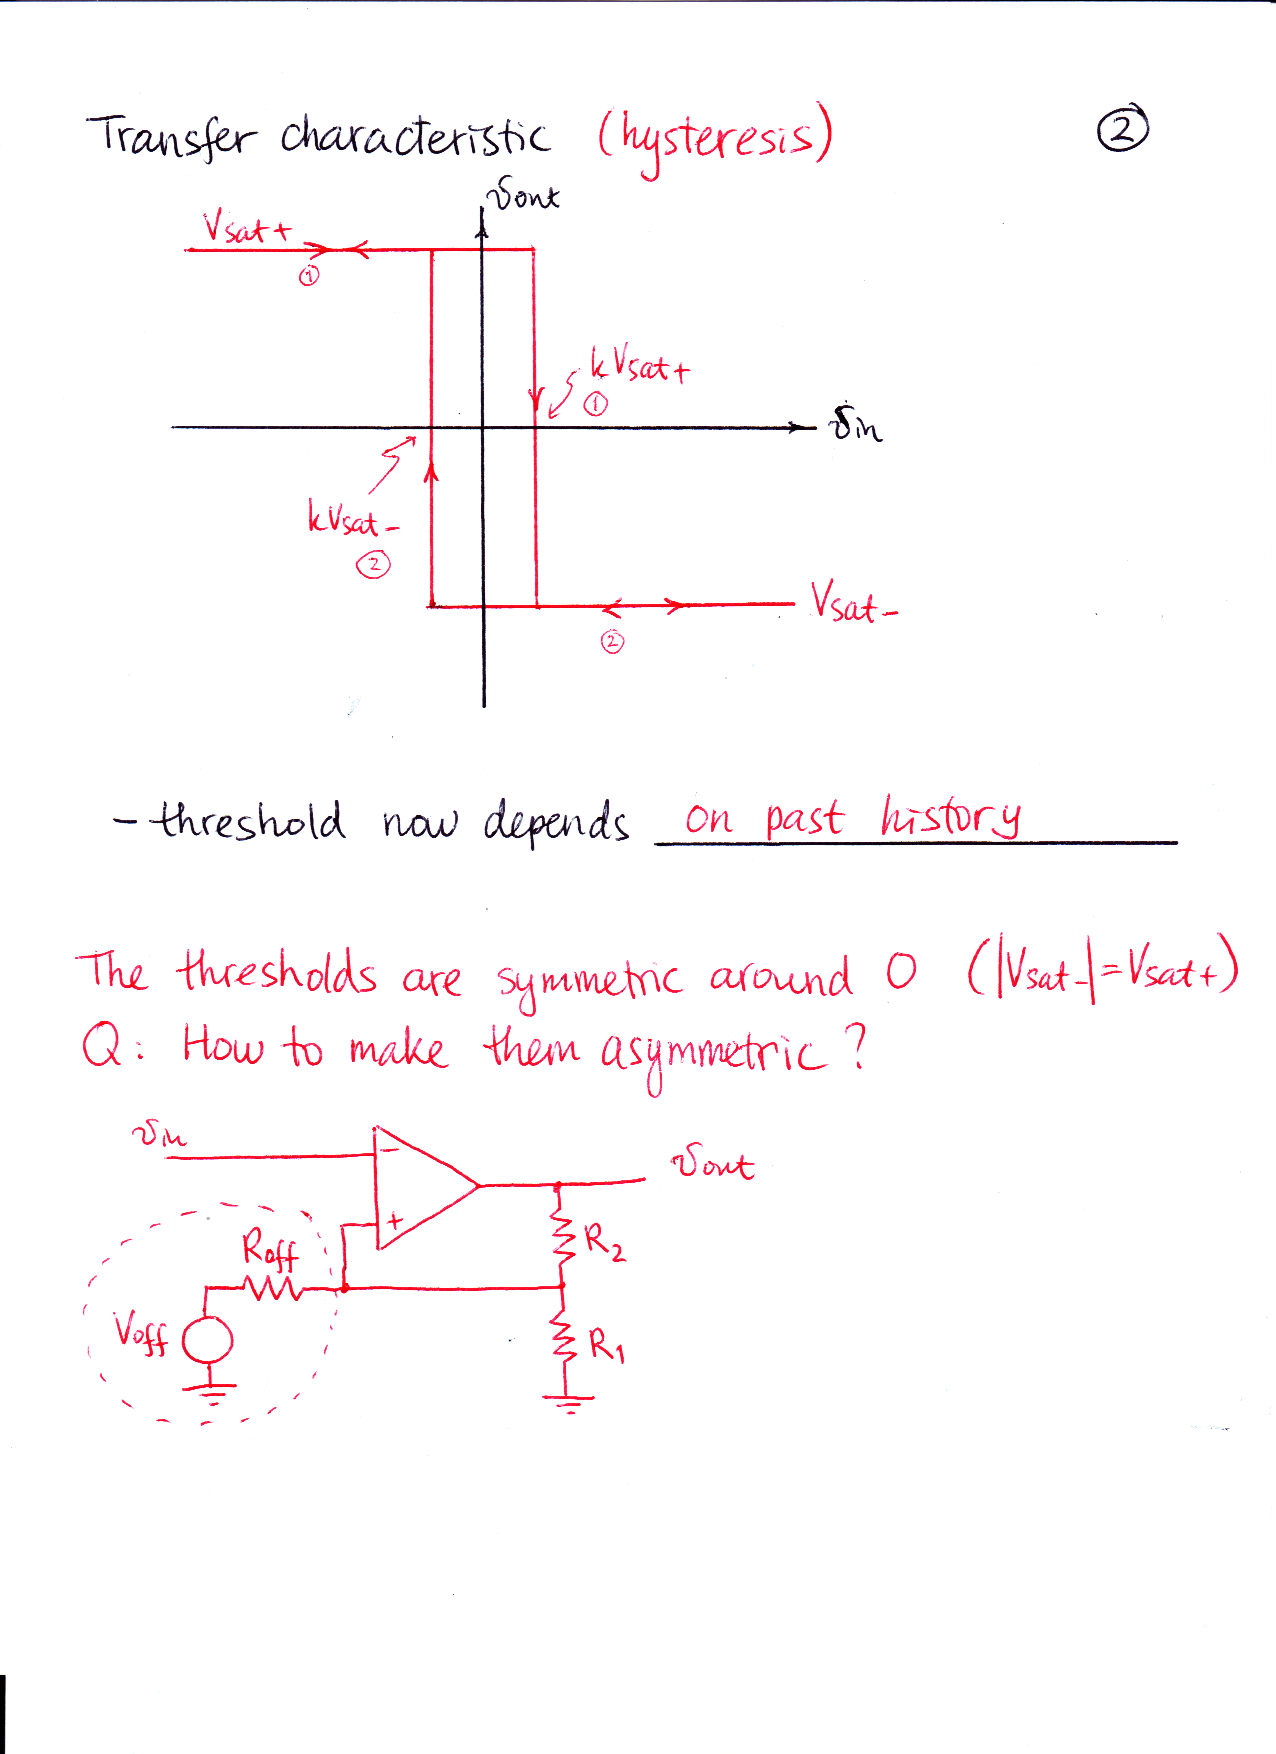 Transfer characteristic (hysteresis) ②
vout
Vsat+
①
kVsat+
①
vin
kVsat-
②
Vsat-
②
- threshold now depends on past history
The thresholds are symmetric around 0 (|Vsat-|=Vsat+)
Q: How to make them asymmetric?
vin
-
vout
+
R2
Roff
Voff
R1